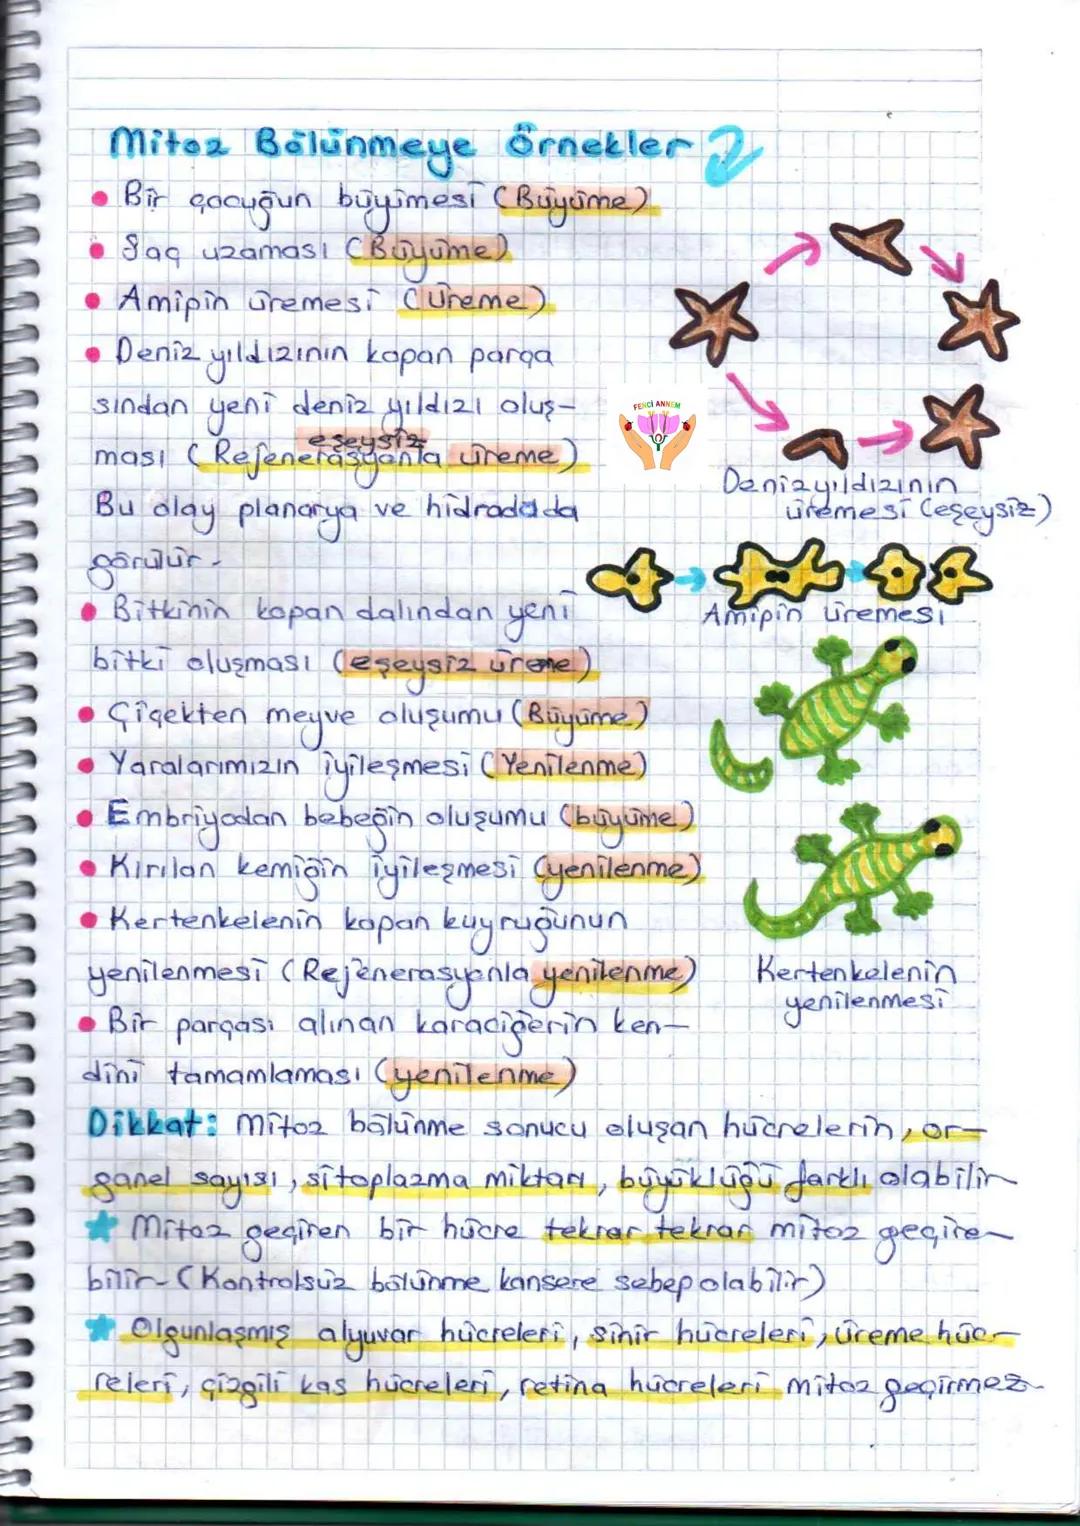 Mitoz Bölünmeye Örnekler
• Bir çocuğun büyümesi (Büyüme)
• Saç uzaması (Büyüme)
• Amipin üremesi (Üreme)
• Deniz yıldızının kopan parça
sından yeni deniz yıldızı oluş-
eşeysiz
ması (Rejenerasyonla üreme)
Bu olay planarya ve hidrada da
görülür.
• Bitkinin kopan dalından yeni
bitki oluşması (eşeysiz üreme)
• Çiçekten meyve oluşumu (Büyüme)
• Yaralarımızın iyileşmesi (Yenilenme)
• Embriyodan bebeğin oluşumu (büyüme)
• Kırılan kemiğin iyileşmesi (yenilenme)
• Kertenkelenin kopan kuyruğunun
yenilenmesi (Rejenerasyonla yenilenme)
• Bir parçası alınan karaciğerin ken-
dini tamamlaması (yenilenme)
Dikkat: Mitoz bölünme sonucu oluşan hücrelerin, or-
ganel sayısı, sitoplazma miktarı, büyüklüğü farklı olabilir
★ Mitoz geçiren bir hücre tekrar tekrar mitoz geçire-
bilir. (Kontrolsüz bölünme kansere sebep olabilir)
★ Olgunlaşmış alyuvar hücreleri, sinir hücreleri, üreme hüc-
releri, çizgili kas hücreleri, retina hücreleri mitoz geçirmez.
FENCİ ANNEM
Denizyıldızının
üremesi (eşeysiz)
Amipin üremesi
Kertenkelenin
yenilenmesi